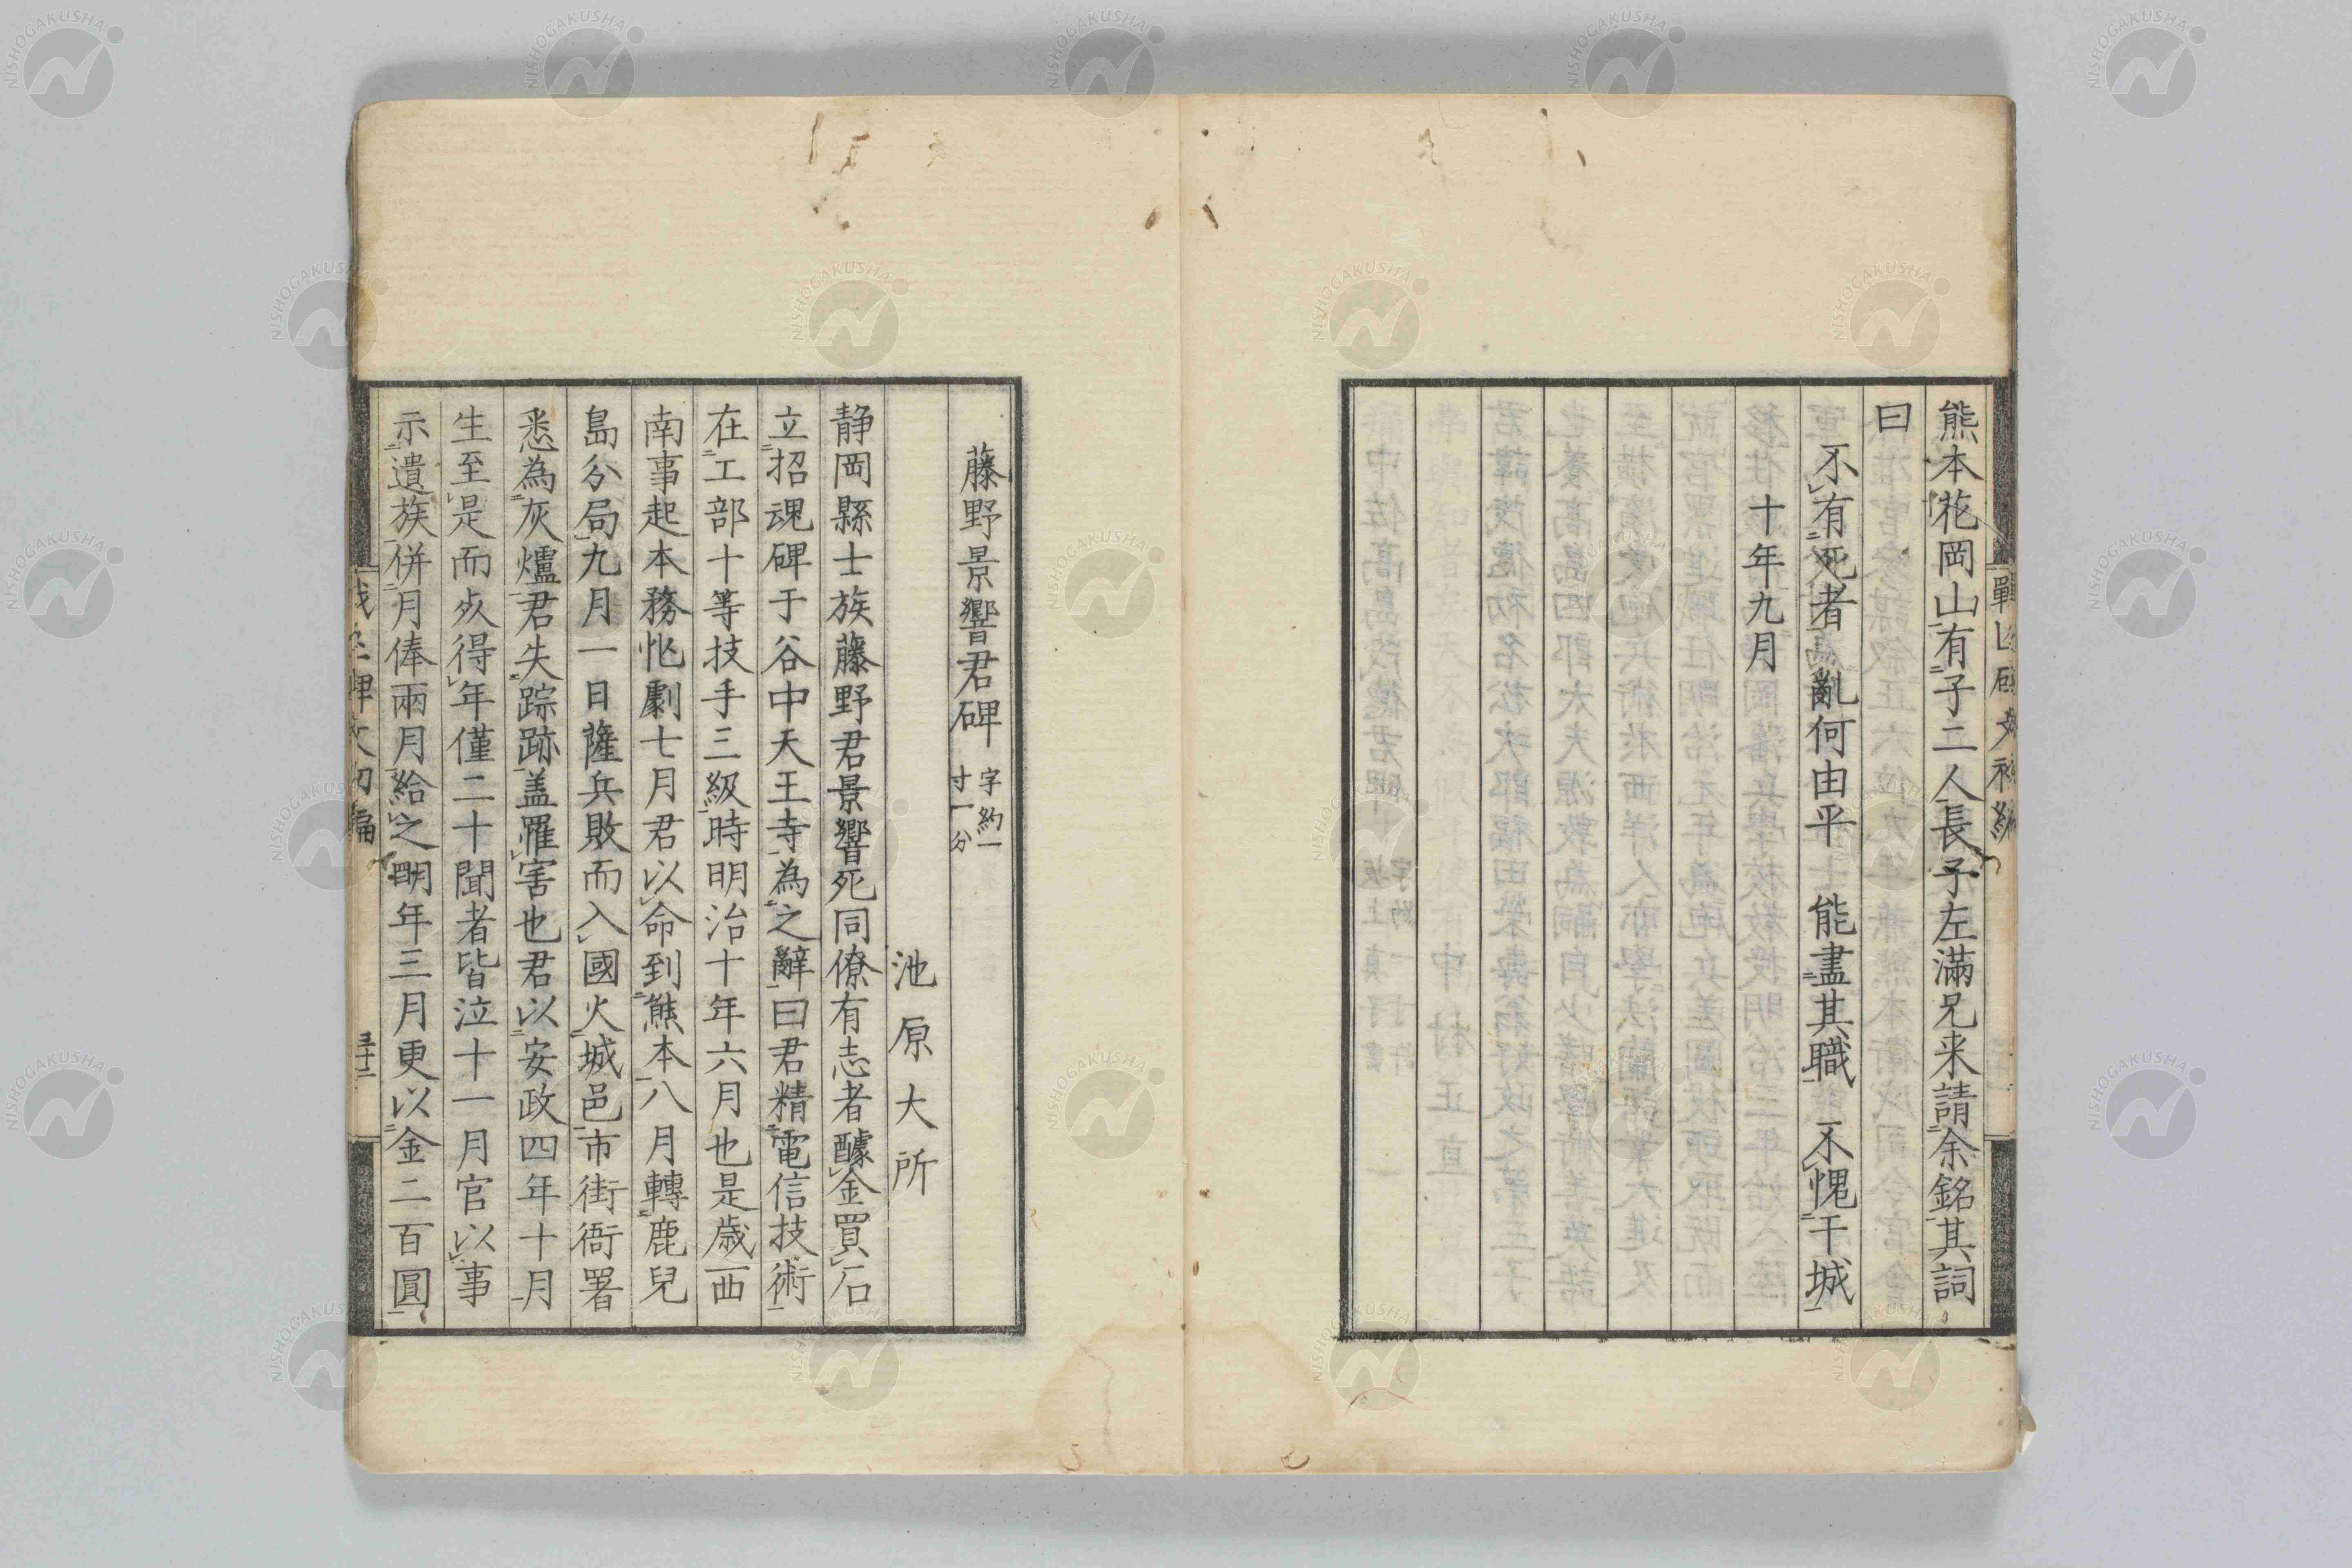 熊本花岡山有子二人長子左滿兄来請余銘其詞
曰
不有死者亂何由平　能盡其職　不愧干城
十年九月
藤野景響君碑 字約一寸一分
池原大所
静岡縣士族藤野君景響死同僚有志者醵金買石
立招魂碑于谷中天王寺為之辭曰君精電信技術
在工部十等技手三級時明治十年六月也是歳西
南事起本務怱劇七月君以命到熊本八月轉鹿兒
島分局九月一日薩兵敗而入國火城邑市街衙署
悉為灰爐君失踪跡盖罹害也君以安政四年十月
生至是而歿得年僅二十聞者皆泣十一月官以事
示遺族併月俸兩月給之明年三月更以金二百圓
三十二
NISHOGAKUSHA